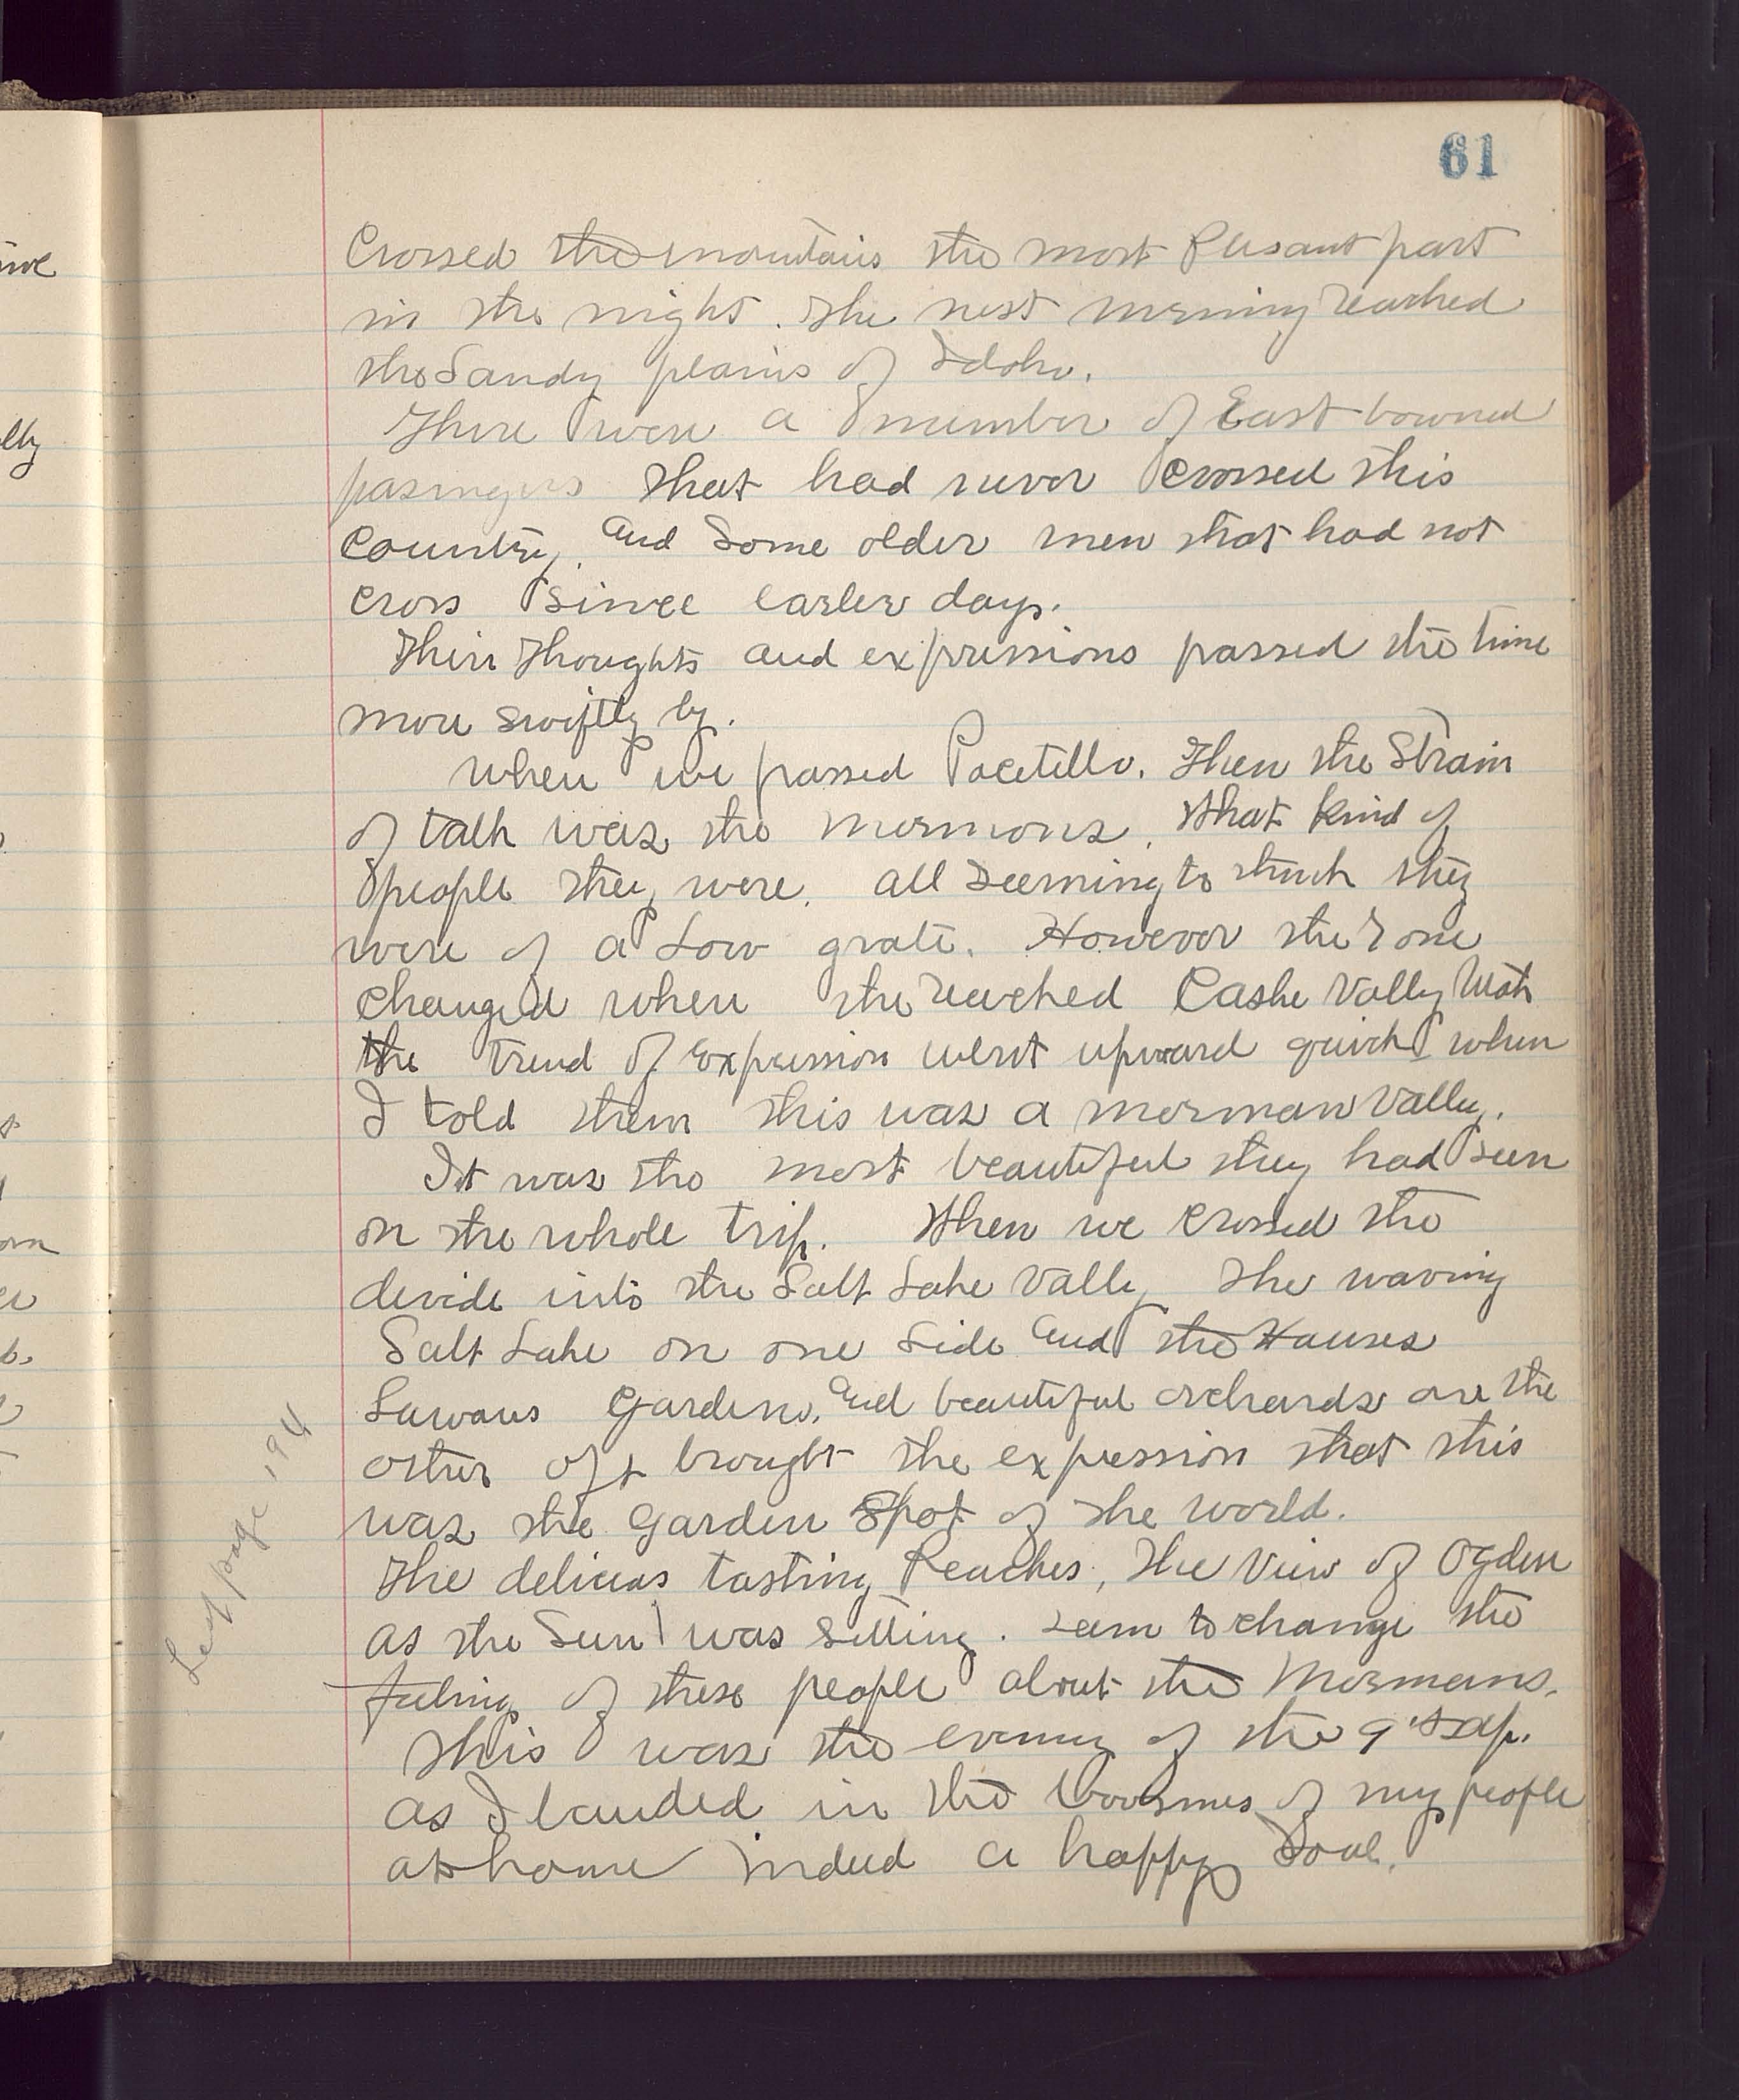 61
Crossed the mountains the most Plesant part
in the night. The next morning reached
the Sandy plains of Idoho.
There were a number of East bowned
pasingers that had never crossed this
Country, and some older men that had not
cross since earler days.
Thier thoughts and expressions passed the time
more swiftly by.
When we passed Pocetillo. Then the Strain
of talk was the Mormons. What kind of
people they were. all seeming to think they
were of a Low grate. However the Tone
changed when the reached Cashe Vally Utah
the trend of Expression went upward quick when
I told them this was a Morman Vally.
It was the most beautiful they had seen
on the whole trip. When we crossed the
devide into the Salt Lake Vally The waving
Salt Lake on one side and the Houses
Lawans Gardens, and beautiful orchards on the
other oft brought the expression that this
was the Garden Spot of the world.
The delicias tasting Peaches, The View of Ogden
as the Sun was setting. seem to change the
feeling of these people about the Mormans.
This was the evening of the 9th Sep.
as I landed in the boosmes of my people
at home indeed a happy Soul.
Left page 194